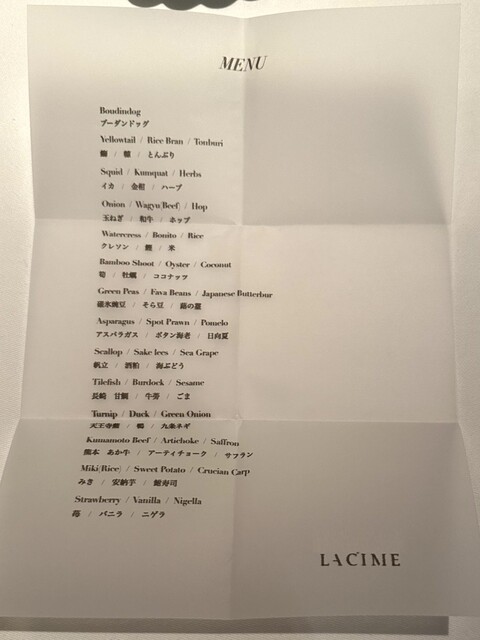 MENU
Boudindog
ブーダンドッグ
Yellowtail / Rice Bran / Tonburi
鰤 / 糠 / とんぶり
Squid / Kumquat / Herbs
イカ / 金柑 / ハーブ
Onion / Wagyu(Beef) / Hop
玉ねぎ / 和牛 / ホップ
Watercress / Bonito / Rice
クレソン / 鰹 / 米
Bamboo Shoot / Oyster / Coconut
筍 / 牡蠣 / ココナッツ
Green Peas / Fava Beans / Japanese Butterbur
碓氷豌豆 / そら豆 / 蕗の薹
Asparagus / Spot Prawn / Pomelo
アスパラガス / ボタン海老 / 日向夏
Scallop / Sake lees / Sea Grape
帆立 / 酒粕 / 海ぶどう
Tilefish / Burdock / Sesame
長崎 甘鯛 / 牛蒡 / ごま
Turnip / Duck / Green Onion
天王寺蕪 / 鴨 / 九条ネギ
Kumamoto Beef / Artichoke / Saffron
熊本 あか牛 / アーティチョーク / サフラン
Miki(Rice) / Sweet Potato / Crucian Carp
みき / 安納芋 / 鮒寿司
Strawberry / Vanilla / Nigella
苺 / バニラ / ニゲラ
LA CIME